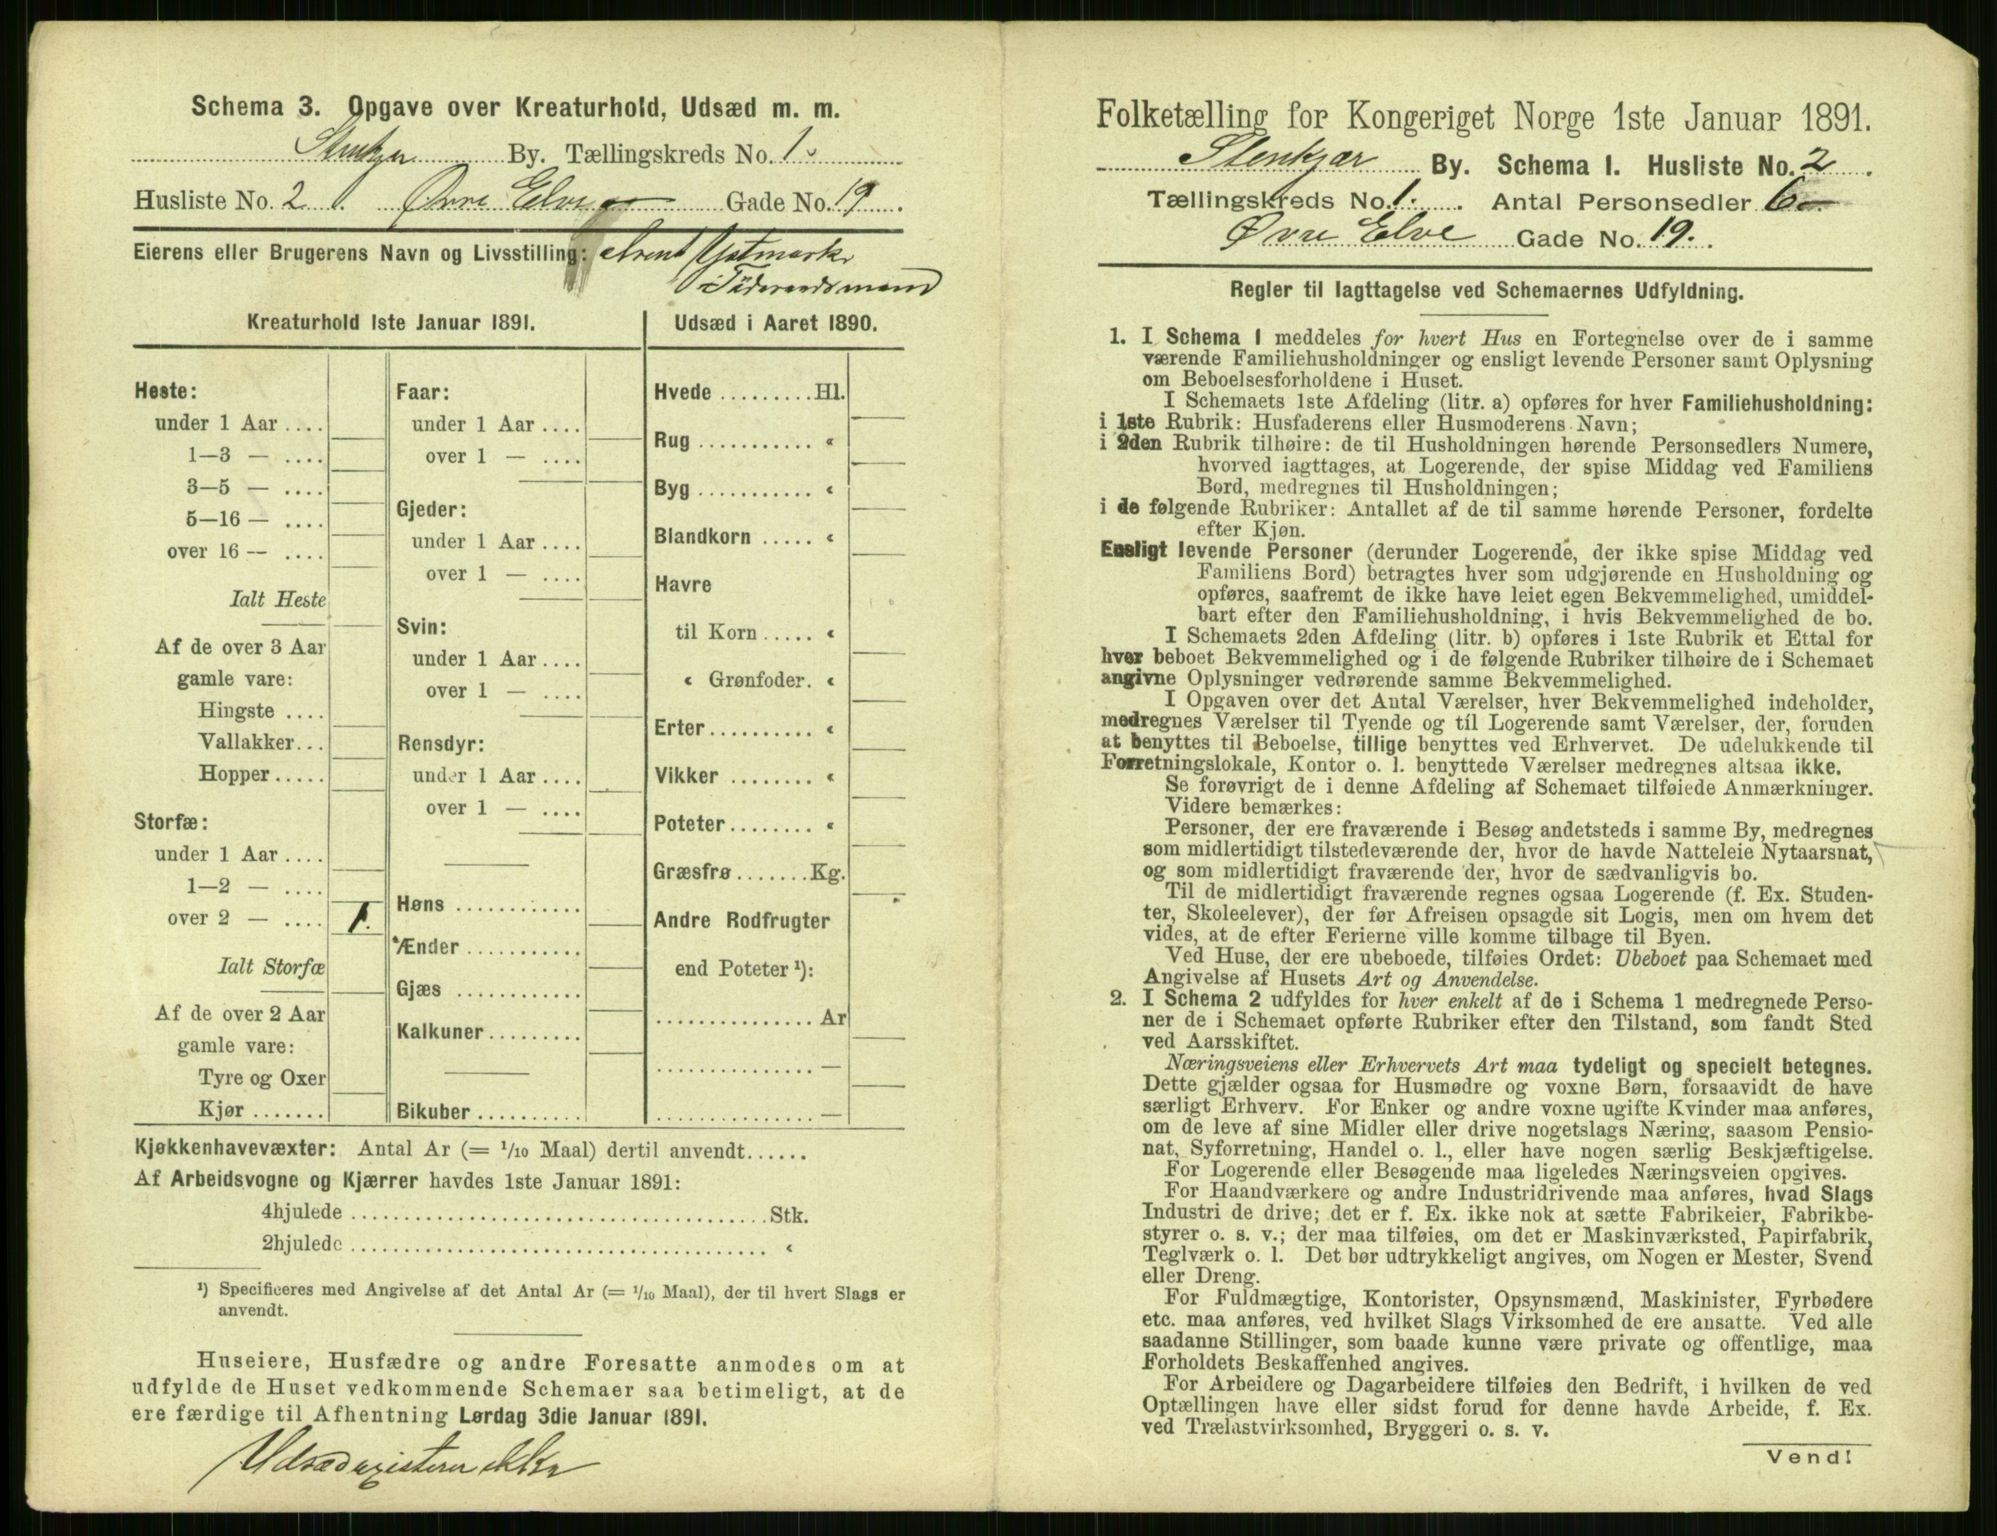 Schema 3. Opgave over Kreaturhold, Udsæd m. m.
Stenkjær By. Tællingskreds No. 1.
Husliste No. 2. Øvre Elve Gade No. 19.
Eierens eller Brugerens Navn og Livsstilling:
Kreaturhold 1ste Januar 1891.
Heste:
under 1 Aar ....
1—3 — ....
3—5 — ....
5—16 — ....
over 16 — ....
Ialt Heste
Af de over 3 Aar
gamle vare:
Hingste ....
Vallakker...
Hopper.....
Storfæ:
under 1 Aar ....
1—2 — ....
over 2 — .... 1.
Ialt Storfæ
Af de over 2 Aar
gamle vare:
Tyre og Oxer
Kjør .......
Faar:
under 1 Aar ....
over 1 — ....
Gjeder:
under 1 Aar ....
over 1 — ....
Svin:
under 1 Aar ....
over 1 — ....
Rensdyr:
under 1 Aar ....
over 1 — ....
Høns ............
Ænder ...........
Gjæs ............
Kalkuner.........
Bikuber ..........
Udsæd i Aaret 1890.
Hvede .........Hl.
Rug ........... «
Byg ........... «
Blandkorn ..... «
Havre
til Korn ..... «
« Grønfoder. «
Erter.......... «
Vikker ........ «
Poteter........ «
Græsfrø.......Kg.
Andre Rodfrugter
end Poteter ¹):
............... Ar
............... —
............... —
Kjøkkenhavevæxter: Antal Ar (= 1/10 Maal) dertil anvendt......
Af Arbeidsvogne og Kjærrer havdes 1ste Januar 1891:
4hjulede ........................................Stk.
2hjulede ........................................ «
¹) Specificeres med Angivelse af det Antal Ar (= 1/10 Maal), der til hvert Slags er
anvendt.
Huseiere, Husfædre og andre Foresatte anmodes om at
udfylde de Huset vedkommende Schemaer saa betimeligt, at de
ere færdige til Afhentning Lørdag 3die Januar 1891.
Udsæd existerer ikke
Folketælling for Kongeriget Norge 1ste Januar 1891.
Stenkjær By. Schema I. Husliste No. 2.
Tællingskreds No. 1. Antal Personsedler 6
Øvre Elve Gade No. 19.
Regler til Iagttagelse ved Schemaernes Udfyldning.
1. I Schema 1 meddeles for hvert Hus en Fortegnelse over de i samme
værende Familiehusholdninger og ensligt levende Personer samt Oplysning
om Beboelsesforholdene i Huset.
I Schemaets 1ste Afdeling (litr. a) opføres for hver Familiehusholdning:
i 1ste Rubrik: Husfaderens eller Husmoderens Navn;
i 2den Rubrik tilhøire: de til Husholdningen hørende Personsedlers Numere,
hvorved iagttages, at Logerende, der spise Middag ved Familiens
Bord, medregnes til Husholdningen;
i de følgende Rubriker: Antallet af de til samme hørende Personer, fordelte
efter Kjøn.
Ensligt levende Personer (derunder Logerende, der ikke spise Middag ved
Familiens Bord) betragtes hver som udgjørende en Husholdning og
opføres, saafremt de ikke have leiet egen Bekvemmelighed, umiddel-
bart efter den Familiehusholdning, i hvis Bekvemmelighed de bo.
I Schemaets 2den Afdeling (litr. b) opføres i 1ste Rubrik et Ettal for
hver beboet Bekvemmelighed og i de følgende Rubriker tilhøire de i Schemaet
angivne Oplysninger vedrørende samme Bekvemmelighed.
I Opgaven over det Antal Værelser, hver Bekvemmelighed indeholder,
medregnes Værelser til Tyende og til Logerende samt Værelser, der, foruden
at benyttes til Beboelse, tillige benyttes ved Erhvervet. De udelukkende til
Forretningslokale, Kontor o. l. benyttede Værelser medregnes altsaa ikke.
Se forøvrigt de i denne Afdeling af Schemaet tilføiede Anmærkninger.
Videre bemærkes:
Personer, der ere fraværende i Besøg andetsteds i samme By, medregnes
som midlertidigt tilstedeværende der, hvor de havde Natteleie Nytaarsnat,
og som midlertidigt fraværende der, hvor de sædvanligvis bo.
Til de midlertidigt fraværende regnes ogsaa Logerende (f. Ex. Studen-
ter, Skoleelever), der før Afreisen opsagde sit Logis, men om hvem det
vides, at de efter Ferierne ville komme tilbage til Byen.
Ved Huse, der ere ubeboede, tilføies Ordet: Ubeboet paa Schemaet med
Angivelse af Husets Art og Anvendelse.
2. I Schema 2 udfyldes for hver enkelt af de i Schema 1 medregnede Perso-
ner de i Schemaet opførte Rubriker efter den Tilstand, som fandt Sted
ved Aarsskiftet.
Næringsveiens eller Erhvervets Art maa tydeligt og specielt betegnes.
Dette gjælder ogsaa for Husmødre og voxne Børn, forsaavidt de have
særligt Erhverv. For Enker og andre voxne ugifte Kvinder maa anføres,
om de leve af sine Midler eller drive nogetslags Næring, saasom Pensio-
nat, Syforretning, Handel o. l., eller have nogen særlig Beskjæftigelse.
For Logerende eller Besøgende maa ligeledes Næringsveien opgives.
For Haandværkere og andre Industridrivende maa anføres, hvad Slags
Industri de drive; det er f. Ex. ikke nok at sætte Fabrikeier, Fabrikbe-
styrer o. s. v.; der maa tilføies, om det er Maskinværksted, Papirfabrik,
Teglværk o. l. Det bør udtrykkeligt angives, om Nogen er Mester, Svend
eller Dreng.
For Fuldmægtige, Kontorister, Opsynsmænd, Maskinister, Fyrbødere
etc. maa anføres, ved hvilket Slags Virksomhed de ere ansatte. Ved alle
saadanne Stillinger, som baade kunne være private og offentlige, maa
Forholdets Beskaffenhed angives.
For Arbeidere og Dagarbeidere tilføies den Bedrift, i hvilken de ved
Optællingen have eller sidst forud for denne havde Arbeide, f. Ex.
ved Trælastvirksomhed, Bryggeri o. s. v.
Vend!